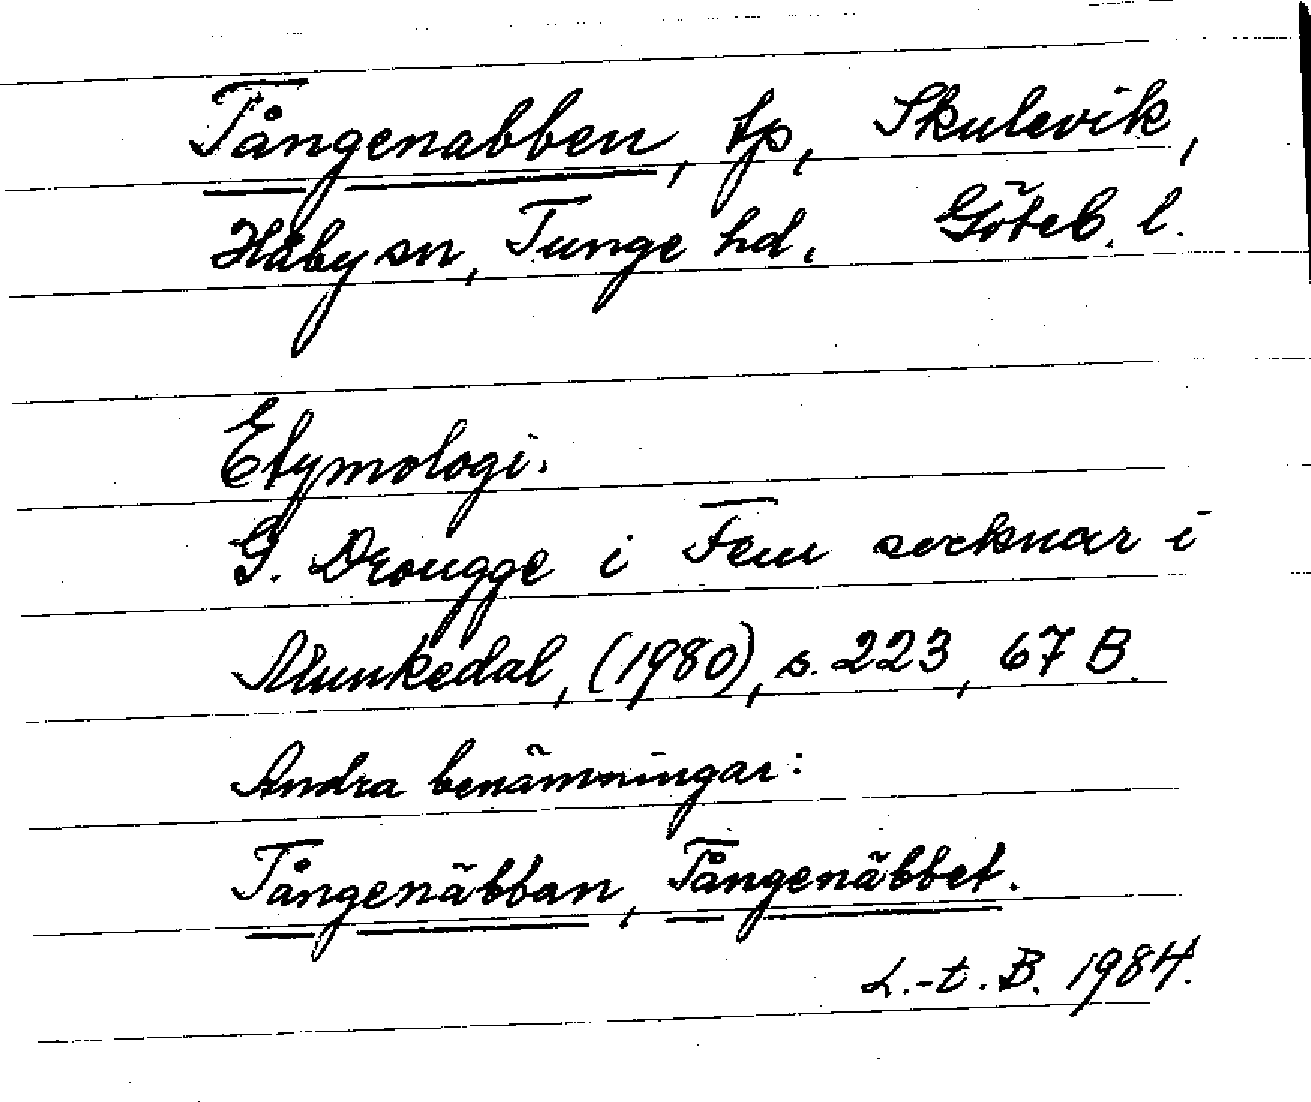 Tångenabben, tp, Skulevik,
Håby sn, Tunge hd. Göteb. l.
Etymologi.
G. Drougge i Fem socknar i
Munkedal, (1980), s. 223, 67 B.
Andra benämningar:
Tångenäbban, Tångenäbbet.
L.-t. B. 1984.